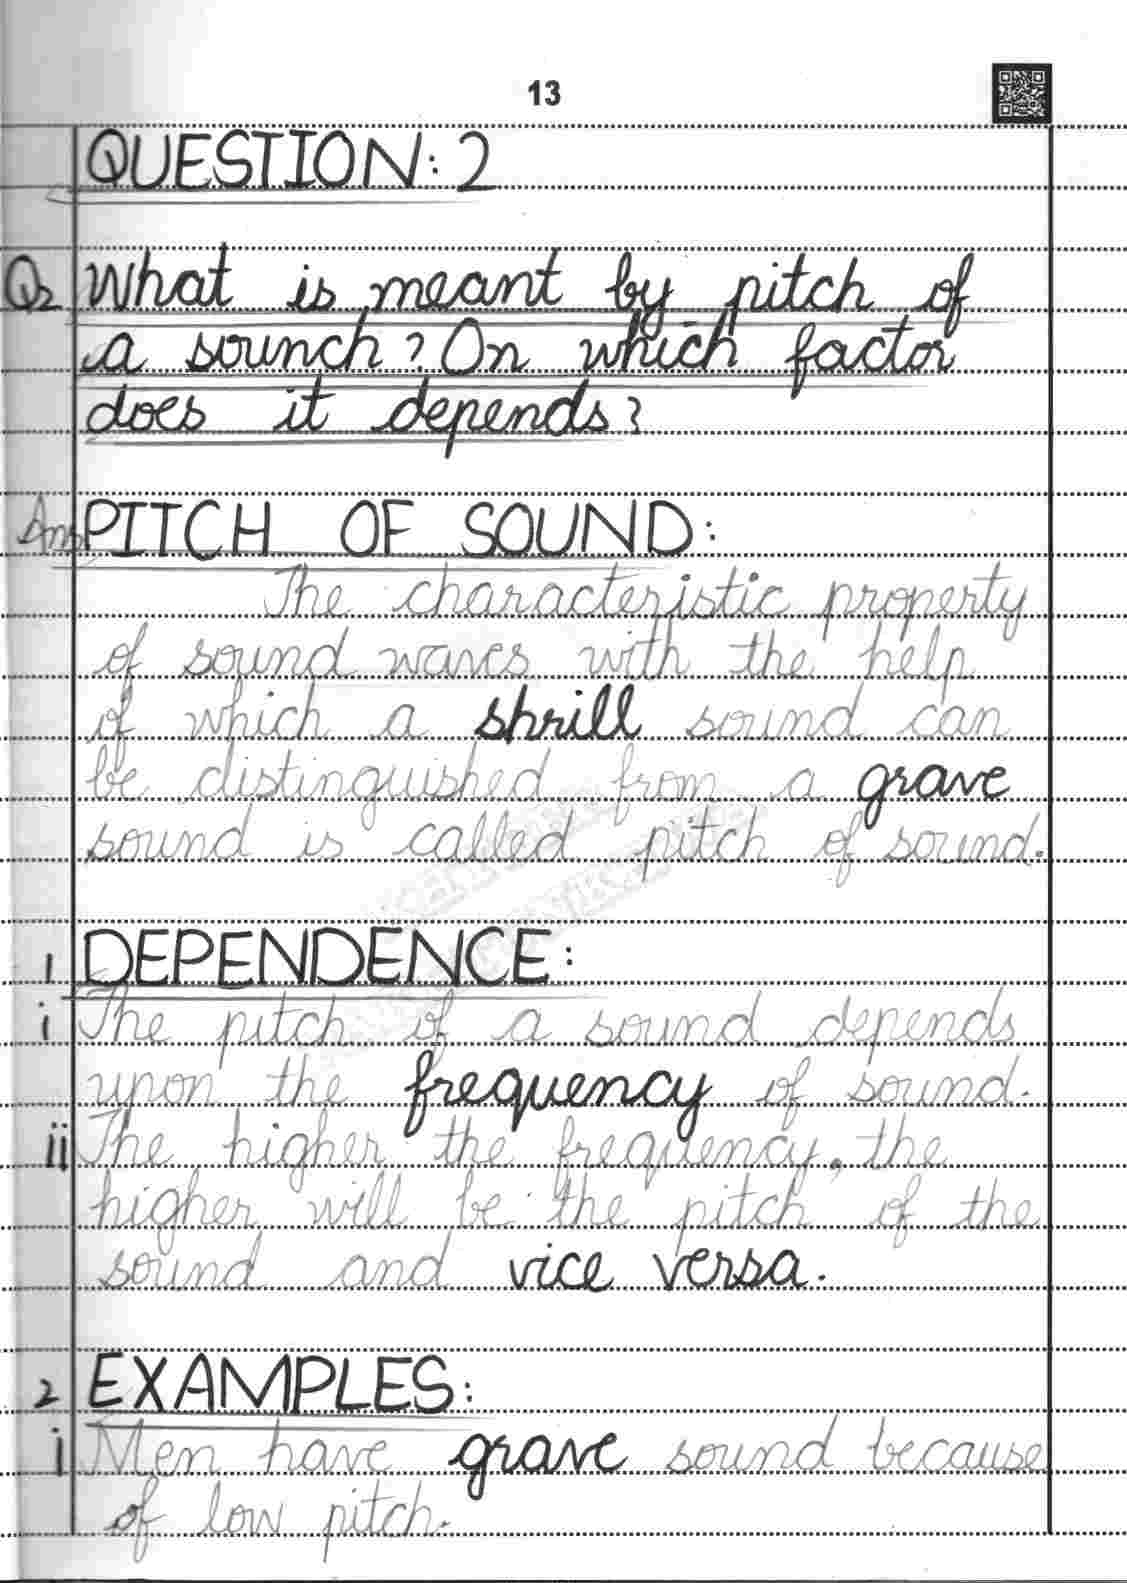 13
QUESTION: 2
Q2 What is meant by pitch of
a sounch? On which factor
does it depends?
Ans PITCH OF SOUND:
The characteristic property
of sound waves with the help
of which a shrill sound can
be distinguished from a grave
sound is called pitch of sound.
1 DEPENDENCE:
i The pitch of a sound depends
upon the frequency of sound.
ii The higher the frequency, the
higher will be the pitch of the
sound and vice versa.
2 EXAMPLES:
i Men have grave sound because
of low pitch.